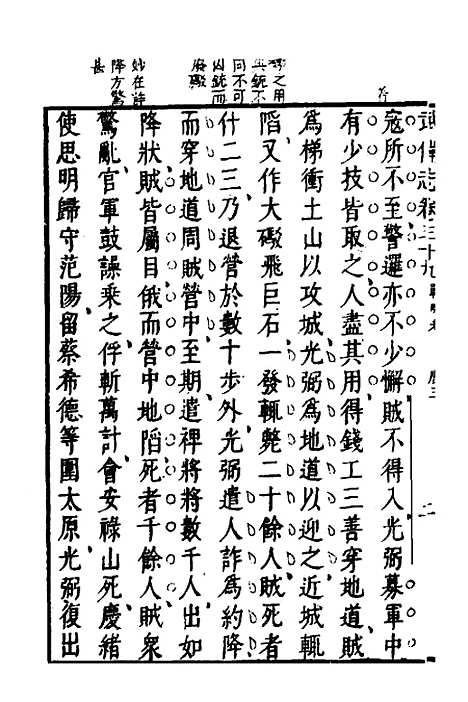 武備志卷三十九 戰略考 唐三 二
寇所不至警邏亦不少懈賊不得入光弼募軍中
有少技皆取之人盡其用得錢工三善穿地道賊
為梯衝土山以攻城光弼為地道以迎之近城輒
陷又作大礮飛巨石一發輒斃二十餘人賊死者
什二三乃退營於數十步外光弼遣人詐為約降
而穿地道周賊營中至期遣裨將將數千人出如
降狀賊皆屬目俄而營中地陷死者千餘人賊衆
驚亂官軍鼓譟乘之俘斬萬計會安祿山死慶緒
使思明歸守范陽留蔡希德等圍太原光弼復出
礮之用
與銃不
同不可
因銃而
廢礮
妙在詐
降方驚
甚